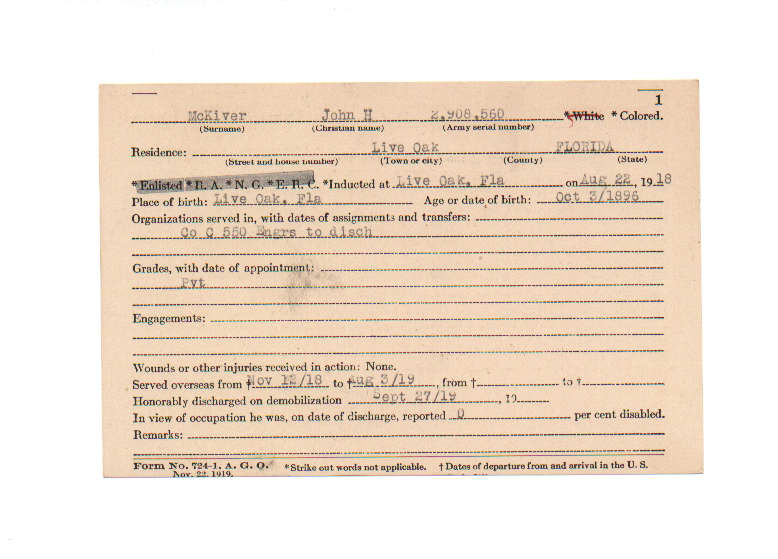 1
McKiver John H 2,908,560 *White *Colored.
(Surname) (Christian name) (Army serial number)
Residence: Live Oak FLORIDA
(Street and house number) (Town or city) (County) (State)
*Enlisted *R. A. *N. G. *E. R. C. *Inducted at Live Oak, Fla on Aug 22, 1918
Place of birth: Live Oak, Fla Age or date of birth: Oct 3/1896
Organizations served in, with dates of assignments and transfers:
Co C 550 Engrs to disch
Grades, with date of appointment:
Pvt
Engagements:
Wounds or other injuries received in action: None.
Served overseas from † Nov 12/18 to † Aug 3/19, from † to †
Honorably discharged on demobilization Sept 27/19, 19
In view of occupation he was, on date of discharge, reported 0 per cent disabled.
Remarks:
Form No. 724-1, A. G. O. *Strike out words not applicable. † Dates of departure from and arrival in the U. S.
Nov. 22, 1919.